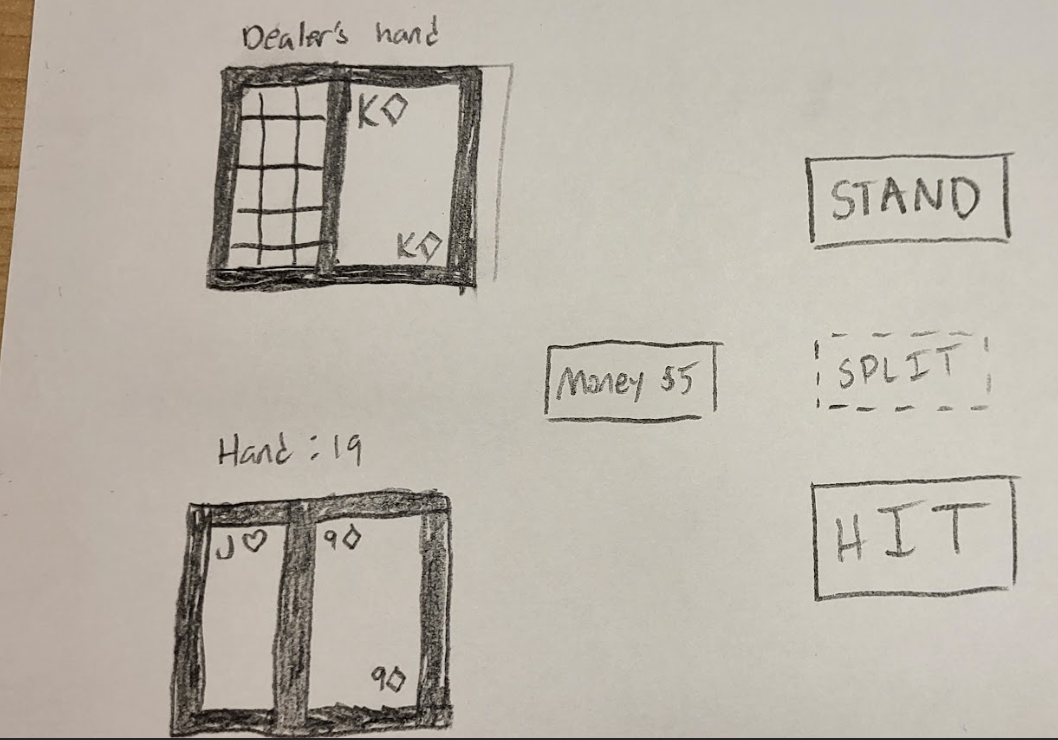 Dealer's hand
K♢
K♢
STAND
Money $5
SPLIT
Hand : 19
J♡ 9♢
HIT
9♢